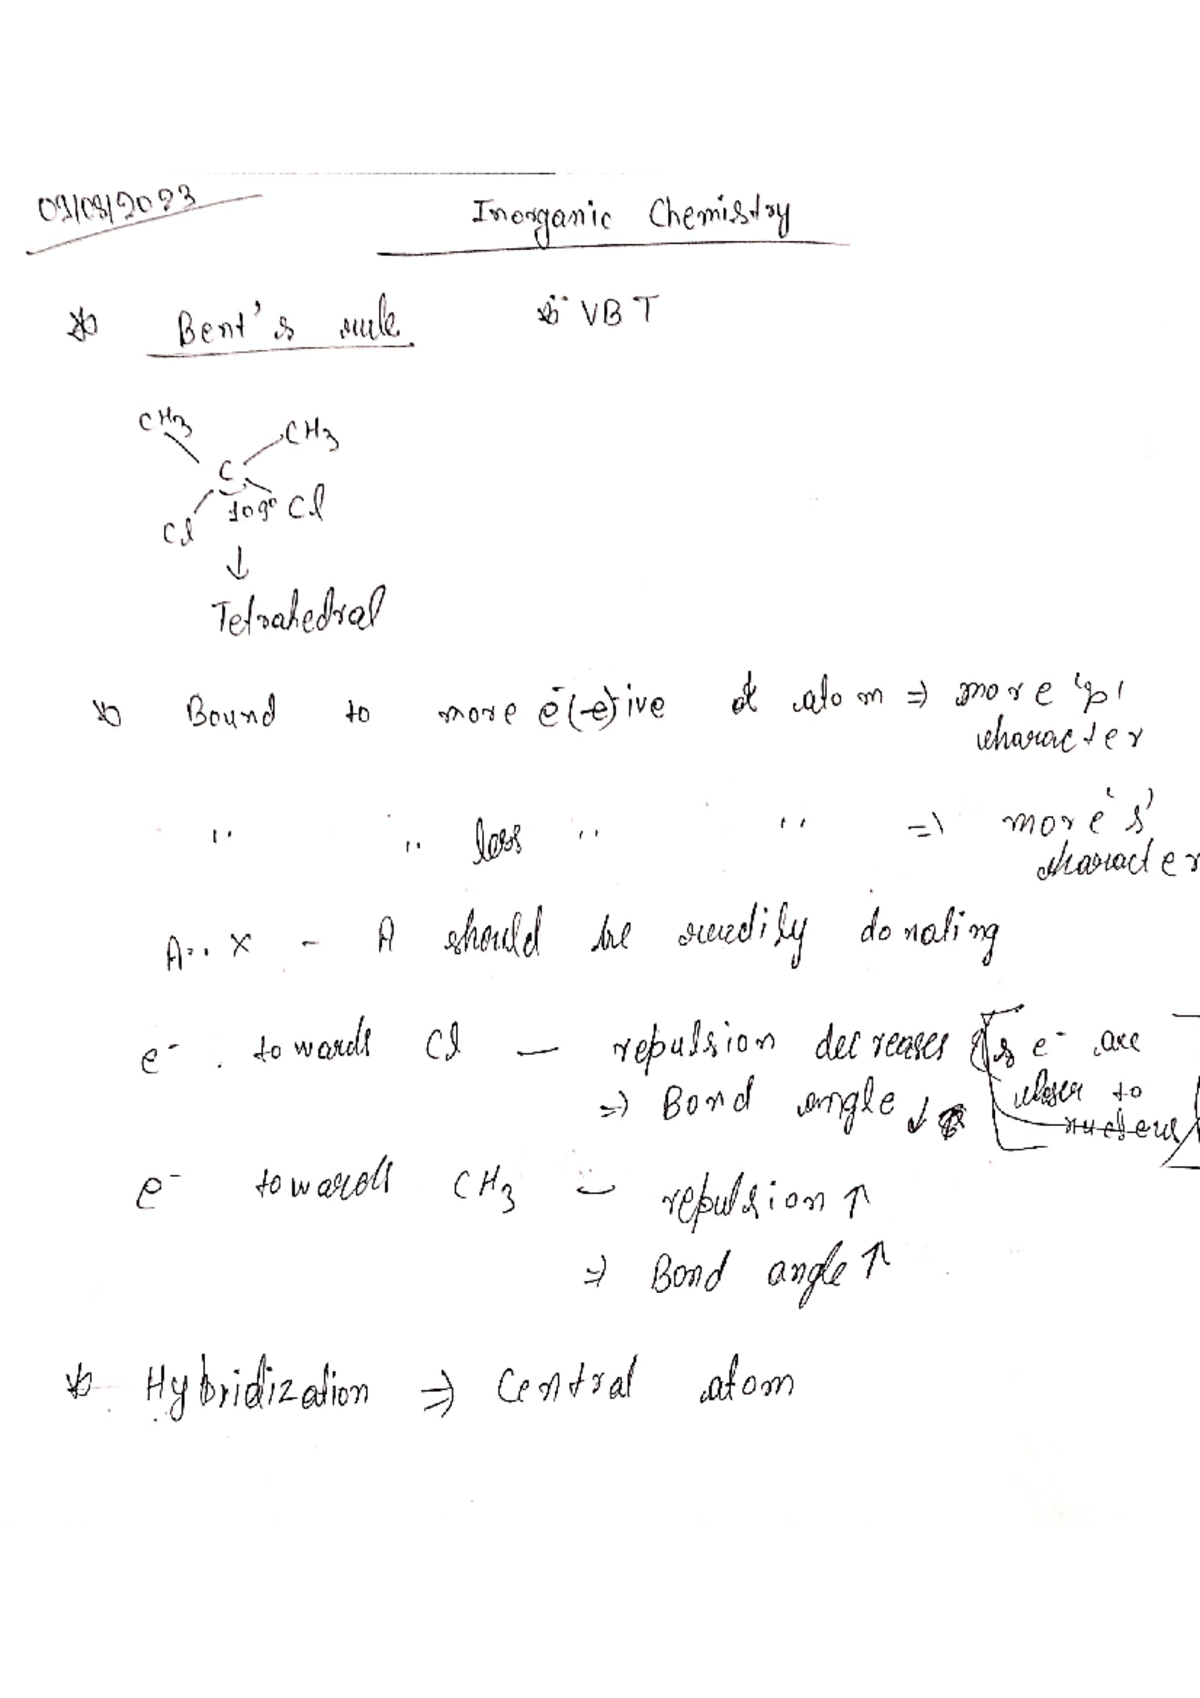 09/08/2023
Inorganic Chemistry
Bent's rule
VBT
CH3
CH3
C
Cl 109° Cl
↓
Tetrahedral
Bound to more e⁻(-e)ive atom ⇒ more 'p'
character
" " less " " ⇒ more 's'
character
A:.X - A should be readily donating
e⁻ towards Cl — repulsion decreases [As e⁻ are
⇒ Bond angle ↓ closer to
nucleus]
e⁻ towards CH3 — repulsion ↑
⇒ Bond angle ↑
Hybridization ⇒ Central atom